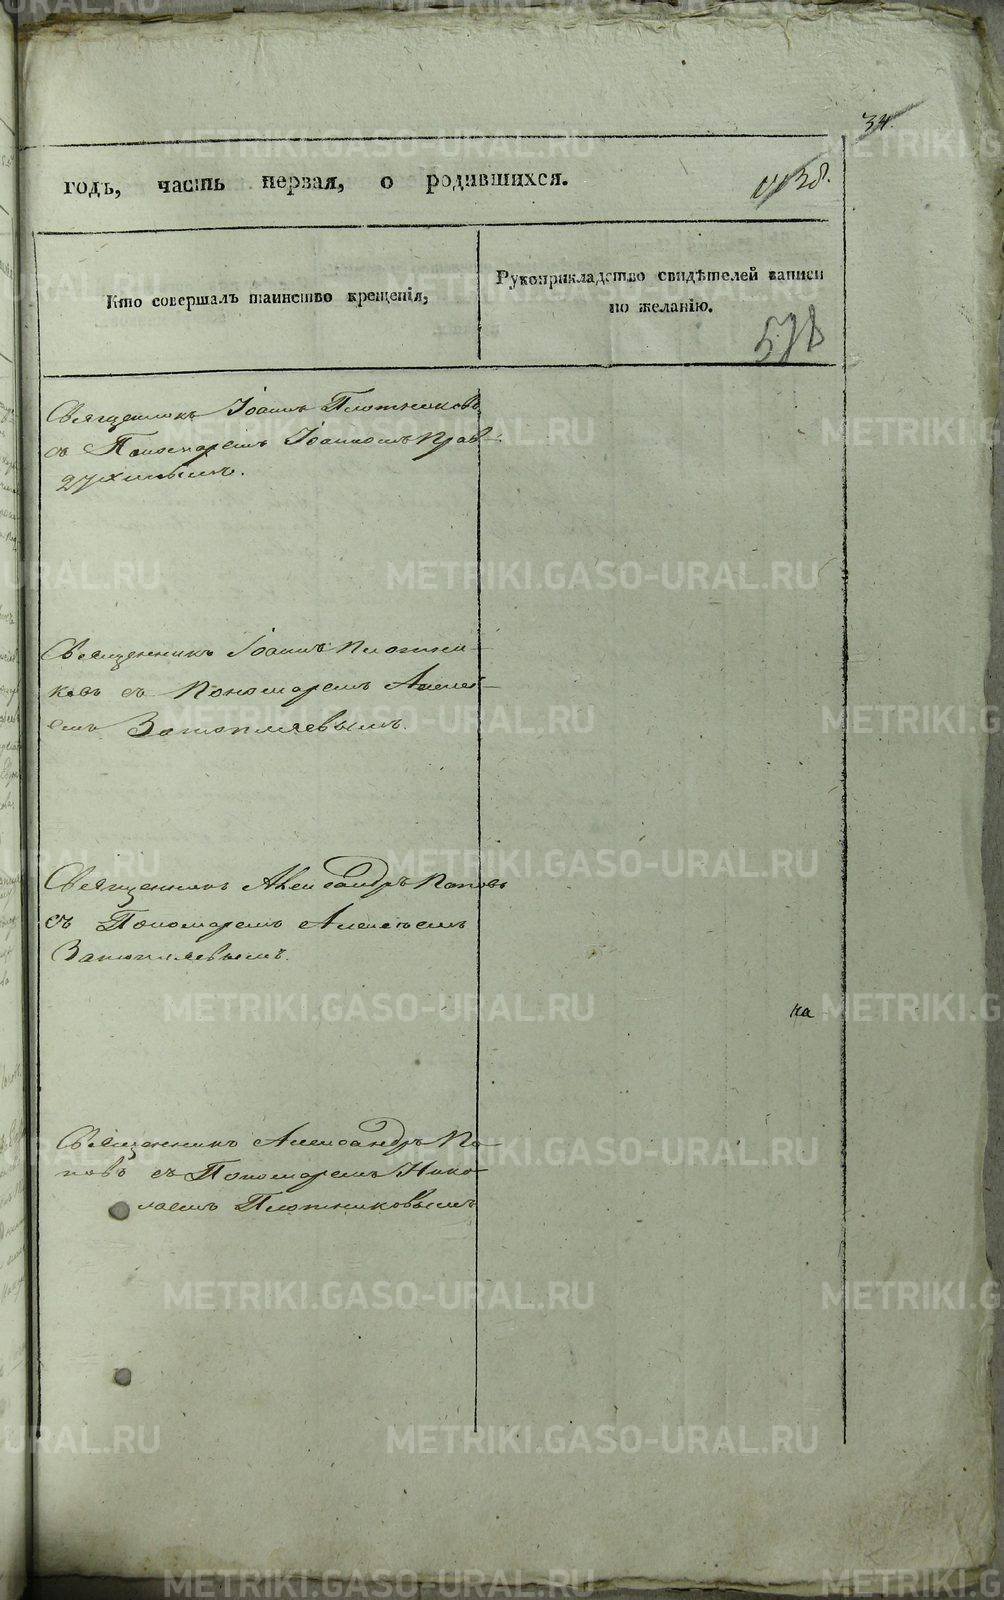 34.
годъ, часть первая, о родившихся.
Кто совершалъ таинство крещенія,
Рукоприкладство свидѣтелей записи
по желанію.
578
Священникъ Іоаннъ Плотниковъ
съ Пономаремъ Іоанномъ Прав-
духинымъ.
Священникъ Іоаннъ Плотни-
ковъ съ Пономаремъ Алексѣ-
емъ Затопляевымъ.
Священникъ Александръ Поповъ
съ Пономаремъ Алексѣемъ
Затопляевымъ.
на
Священникъ Александръ По-
повъ съ Пономаремъ Нико-
лаемъ Плотниковымъ
METRIKI.GASO-URAL.RU